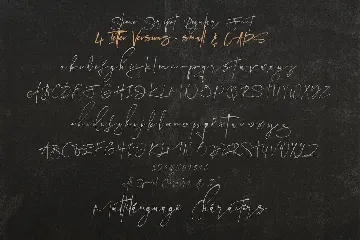 Script Regular Font
4 letter Versions small & CAPS
abcdefghijklmnopqrstuvwxyz
ABCDEFGHIJKLMNOPQRSTUVWXYZ
abcdefghijklmnopqrstuvwxyz
ABCDEFGHIJKLMNOPQRSTUVWXYZ
Multilanguage Characters